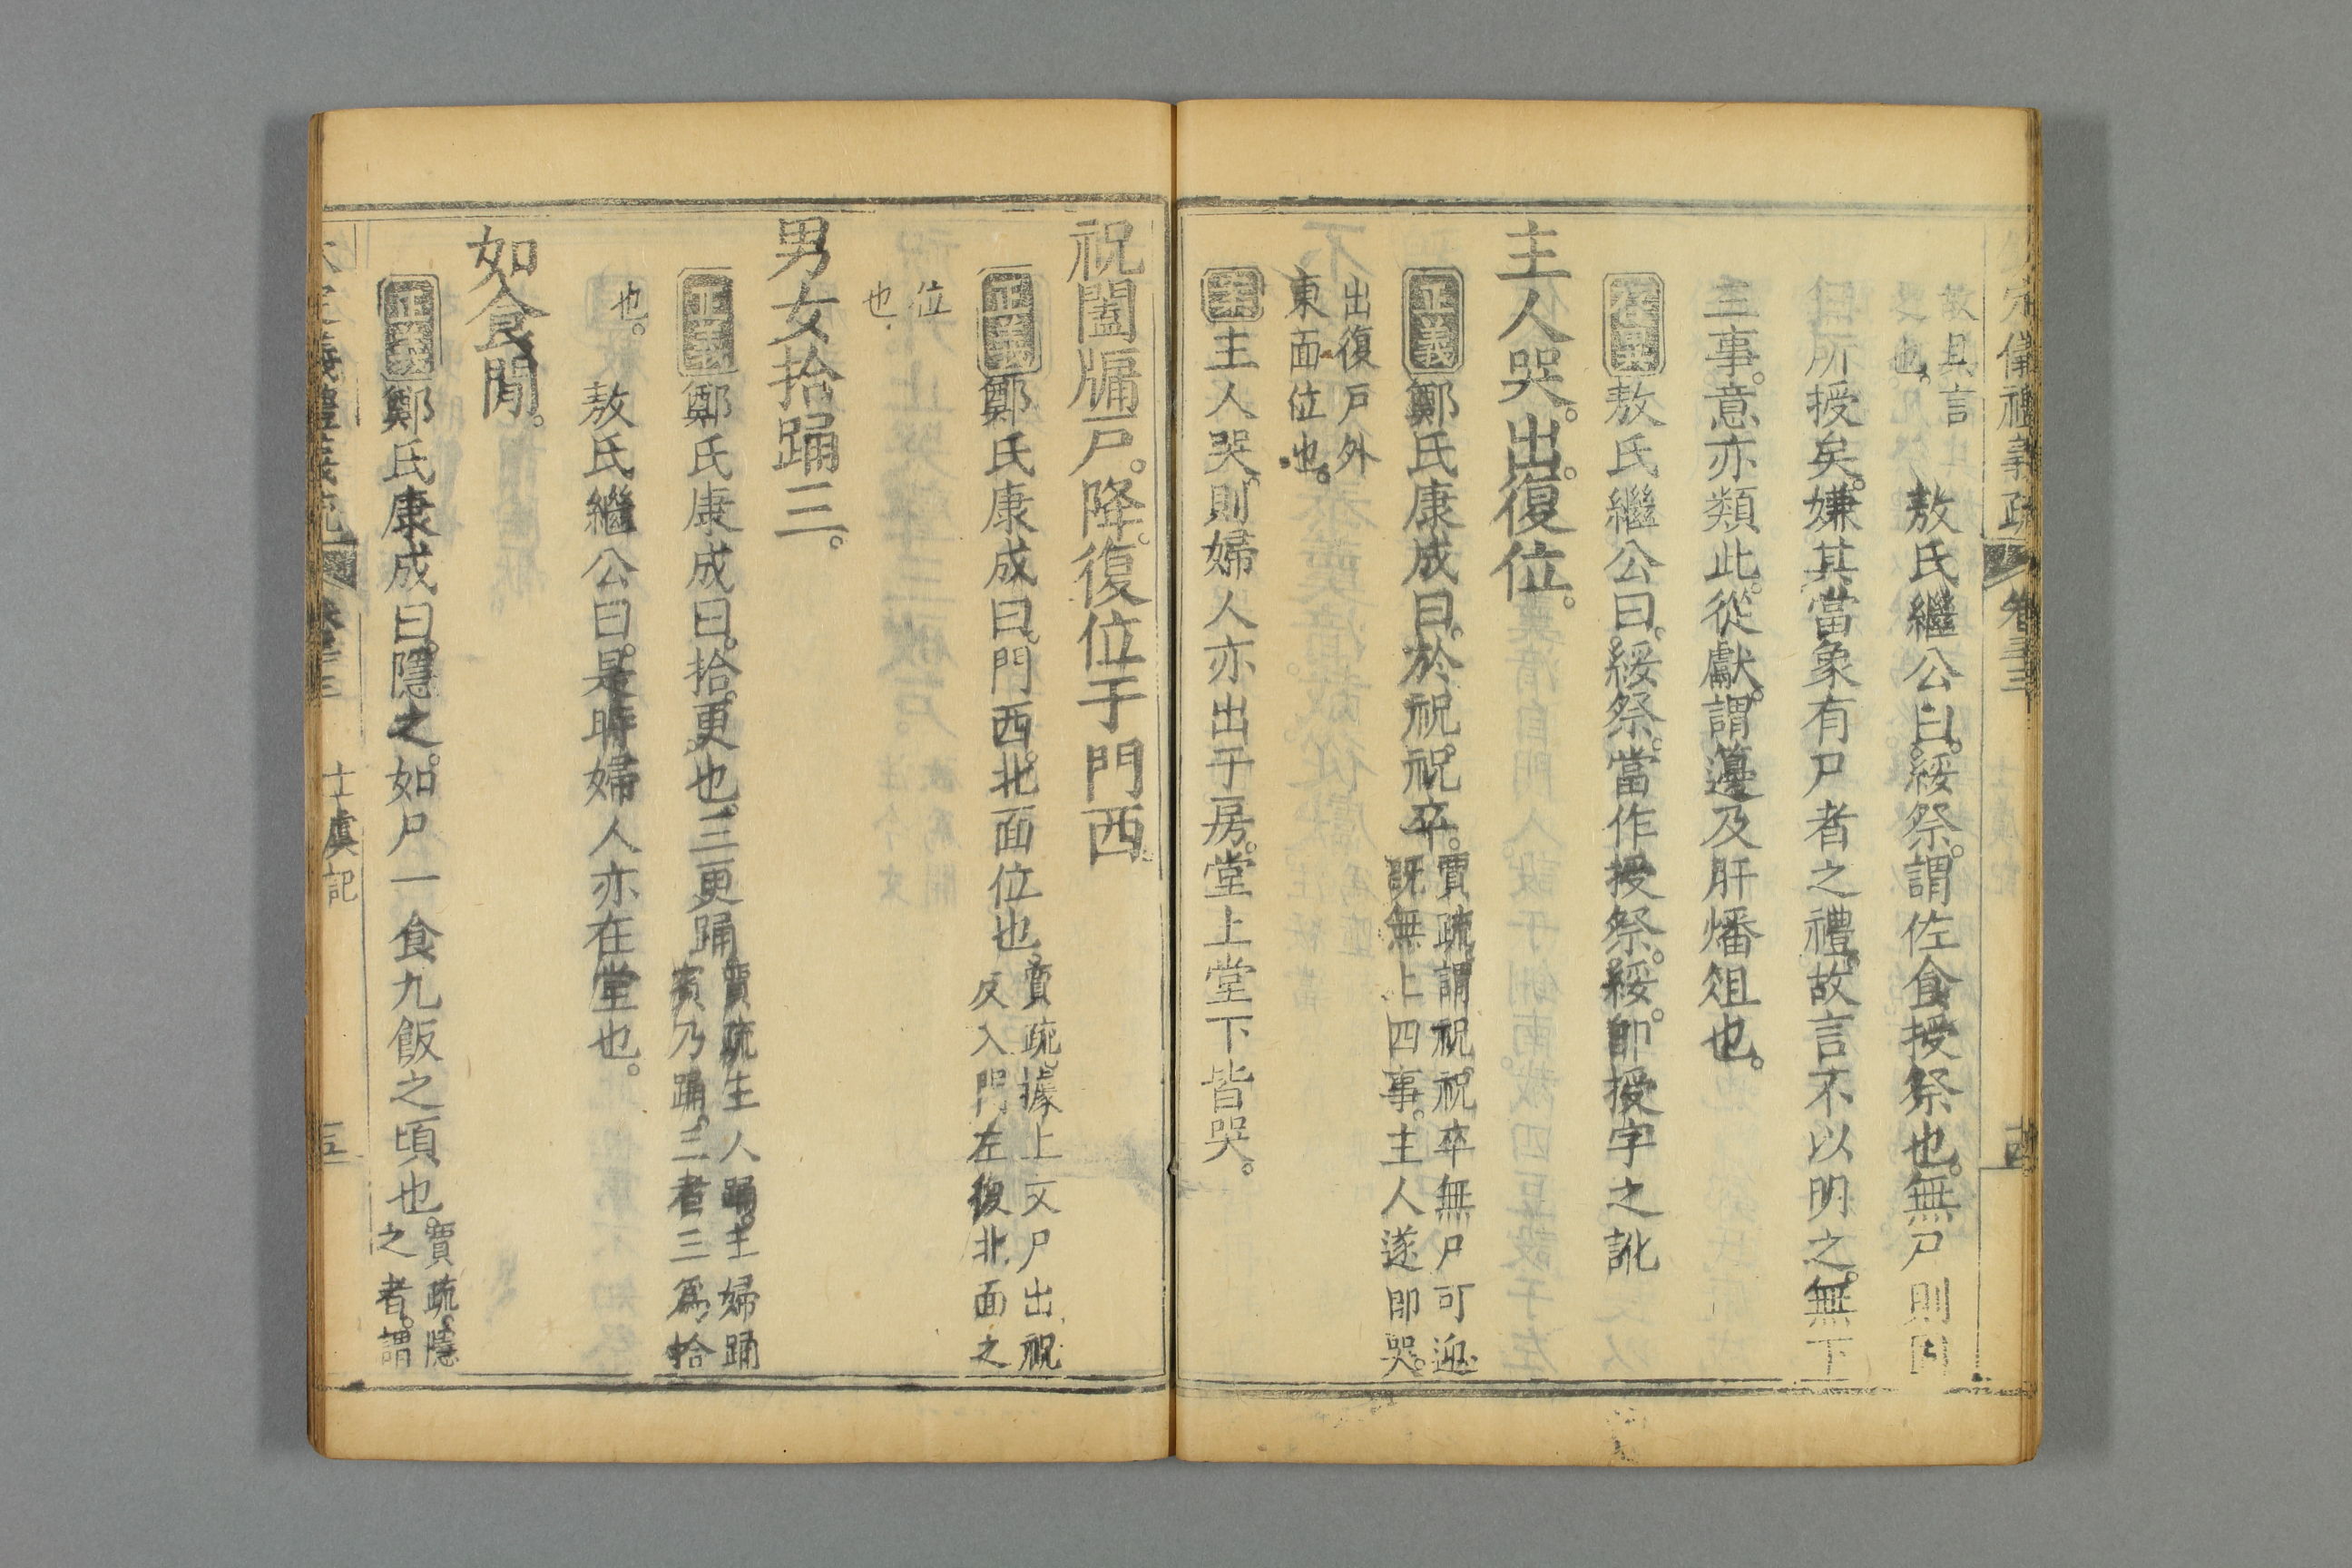 欽定儀禮義疏 卷三十三
故具言
受也。敖氏繼公曰。綏祭。謂佐食授祭也。無尸則因
所授矣。嫌其當象有尸者之禮。故言不以明之。無下
三事。意亦類此。從獻。謂籩及肝燔俎也。
存異敖氏繼公曰。綏祭。當作授祭。綏。即授字之訛
主人哭。出。復位。
正義鄭氏康成曰。於祝祝卒。賈疏謂祝。祝卒無尸可迎
既無上四事。主人遂即哭。
出復戶外
東面位也。
主人哭。則婦人亦出于房。堂上堂下皆哭。
祝闔牖戶。降。復位于門西。
正義鄭氏康成曰。門西。北面位也。賈疏。據上文尸出祝
反入門左。復北面之
位
也。
男女拾踊三。
正義鄭氏康成曰。拾。更也。三更踊賈疏。主人踊。主婦踊
賓乃踊。三者三爲拾
也。
敖氏繼公曰。是時婦人亦在堂也。
如食閒。
正義鄭氏康成曰。隱之。如尸一食九飯之頃也。賈疏。隱
之者。謂
士虞記